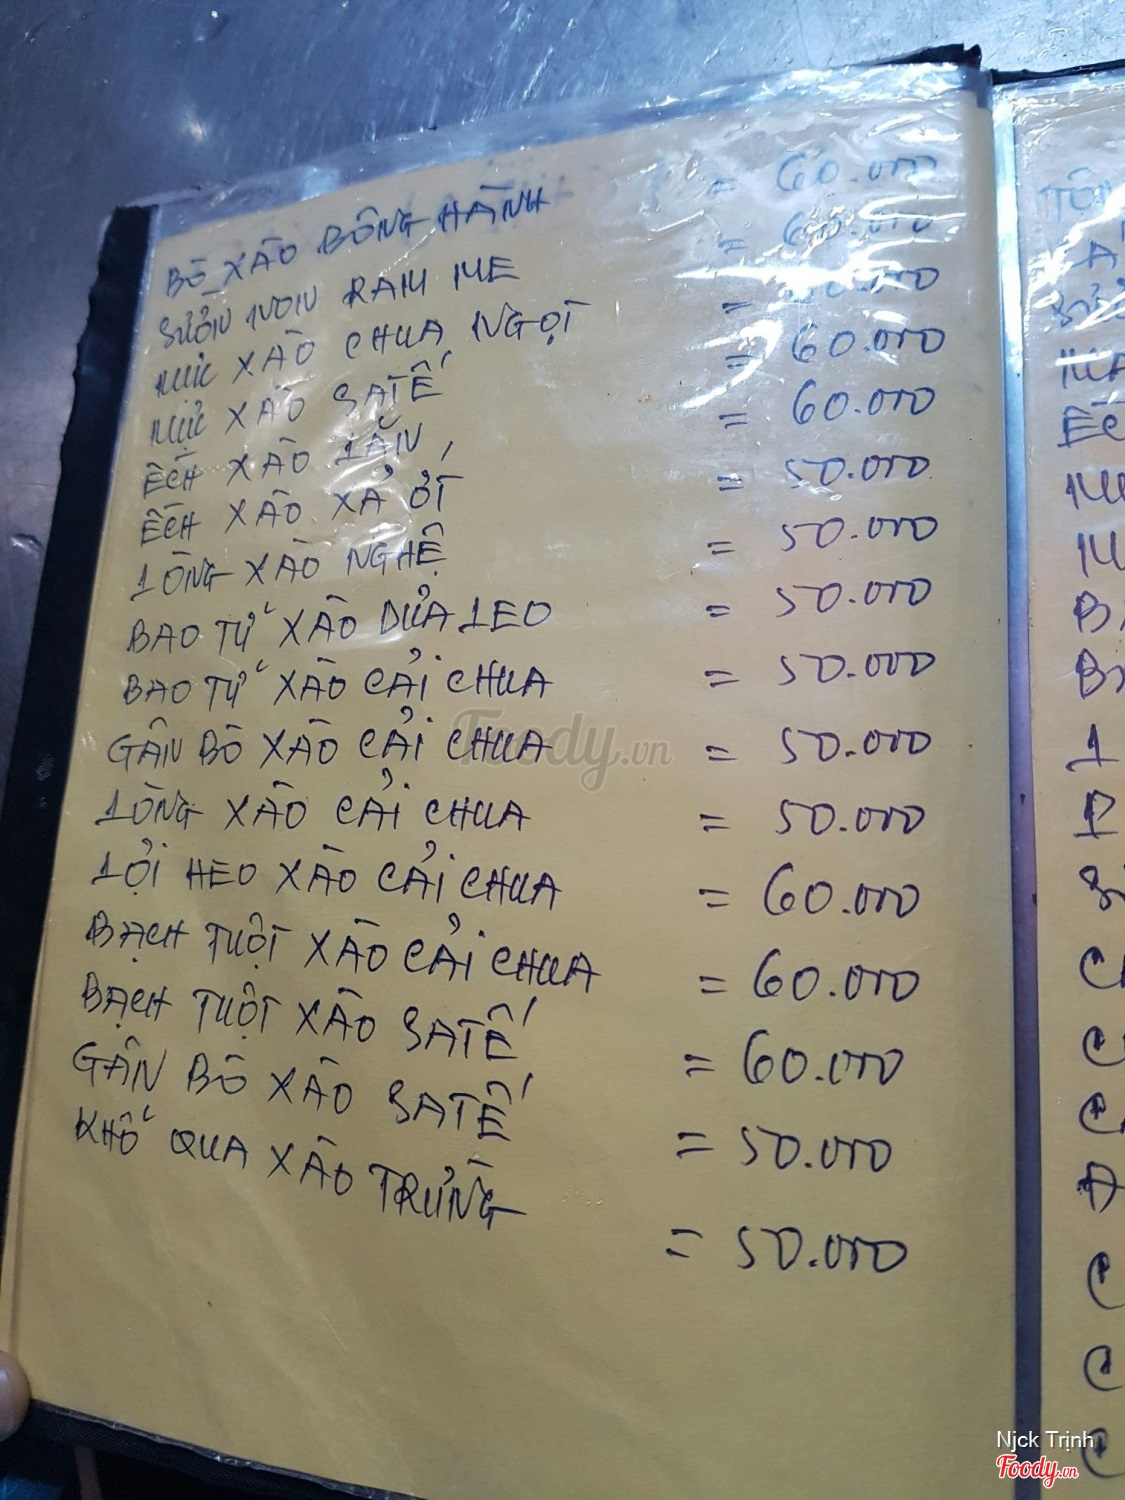 BÒ XÀO BÔNG HÀNH = 60.000
SƯỜN NON RAM ME = 60.000
MỰC XÀO CHUA NGỌT
MỰC XÀO SATẾ = 60.000
ẾCH XÀO LĂN = 60.000
ẾCH XÀO XẢ ỚT = 50.000
LÒNG XÀO NGHỆ = 50.000
BAO TỬ XÀO DƯA LEO = 50.000
BAO TỬ XÀO CẢI CHUA = 50.000
GÂN BÒ XÀO CẢI CHUA = 50.000
LÒNG XÀO CẢI CHUA = 50.000
LỢI HEO XÀO CẢI CHUA = 60.000
BẠCH TUỘT XÀO CẢI CHUA = 60.000
BẠCH TUỘT XÀO SATẾ = 60.000
GÂN BÒ XÀO SATẾ = 50.000
KHỔ QUA XÀO TRỨNG = 50.000
Foody.vn
Njck Trịnh
Foody.vn